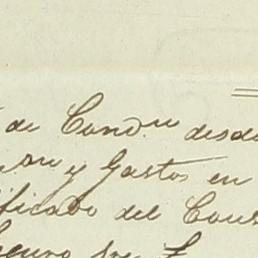 de Cond.on desde
on y Gastos en
ificado del Cons
Seguro sre £